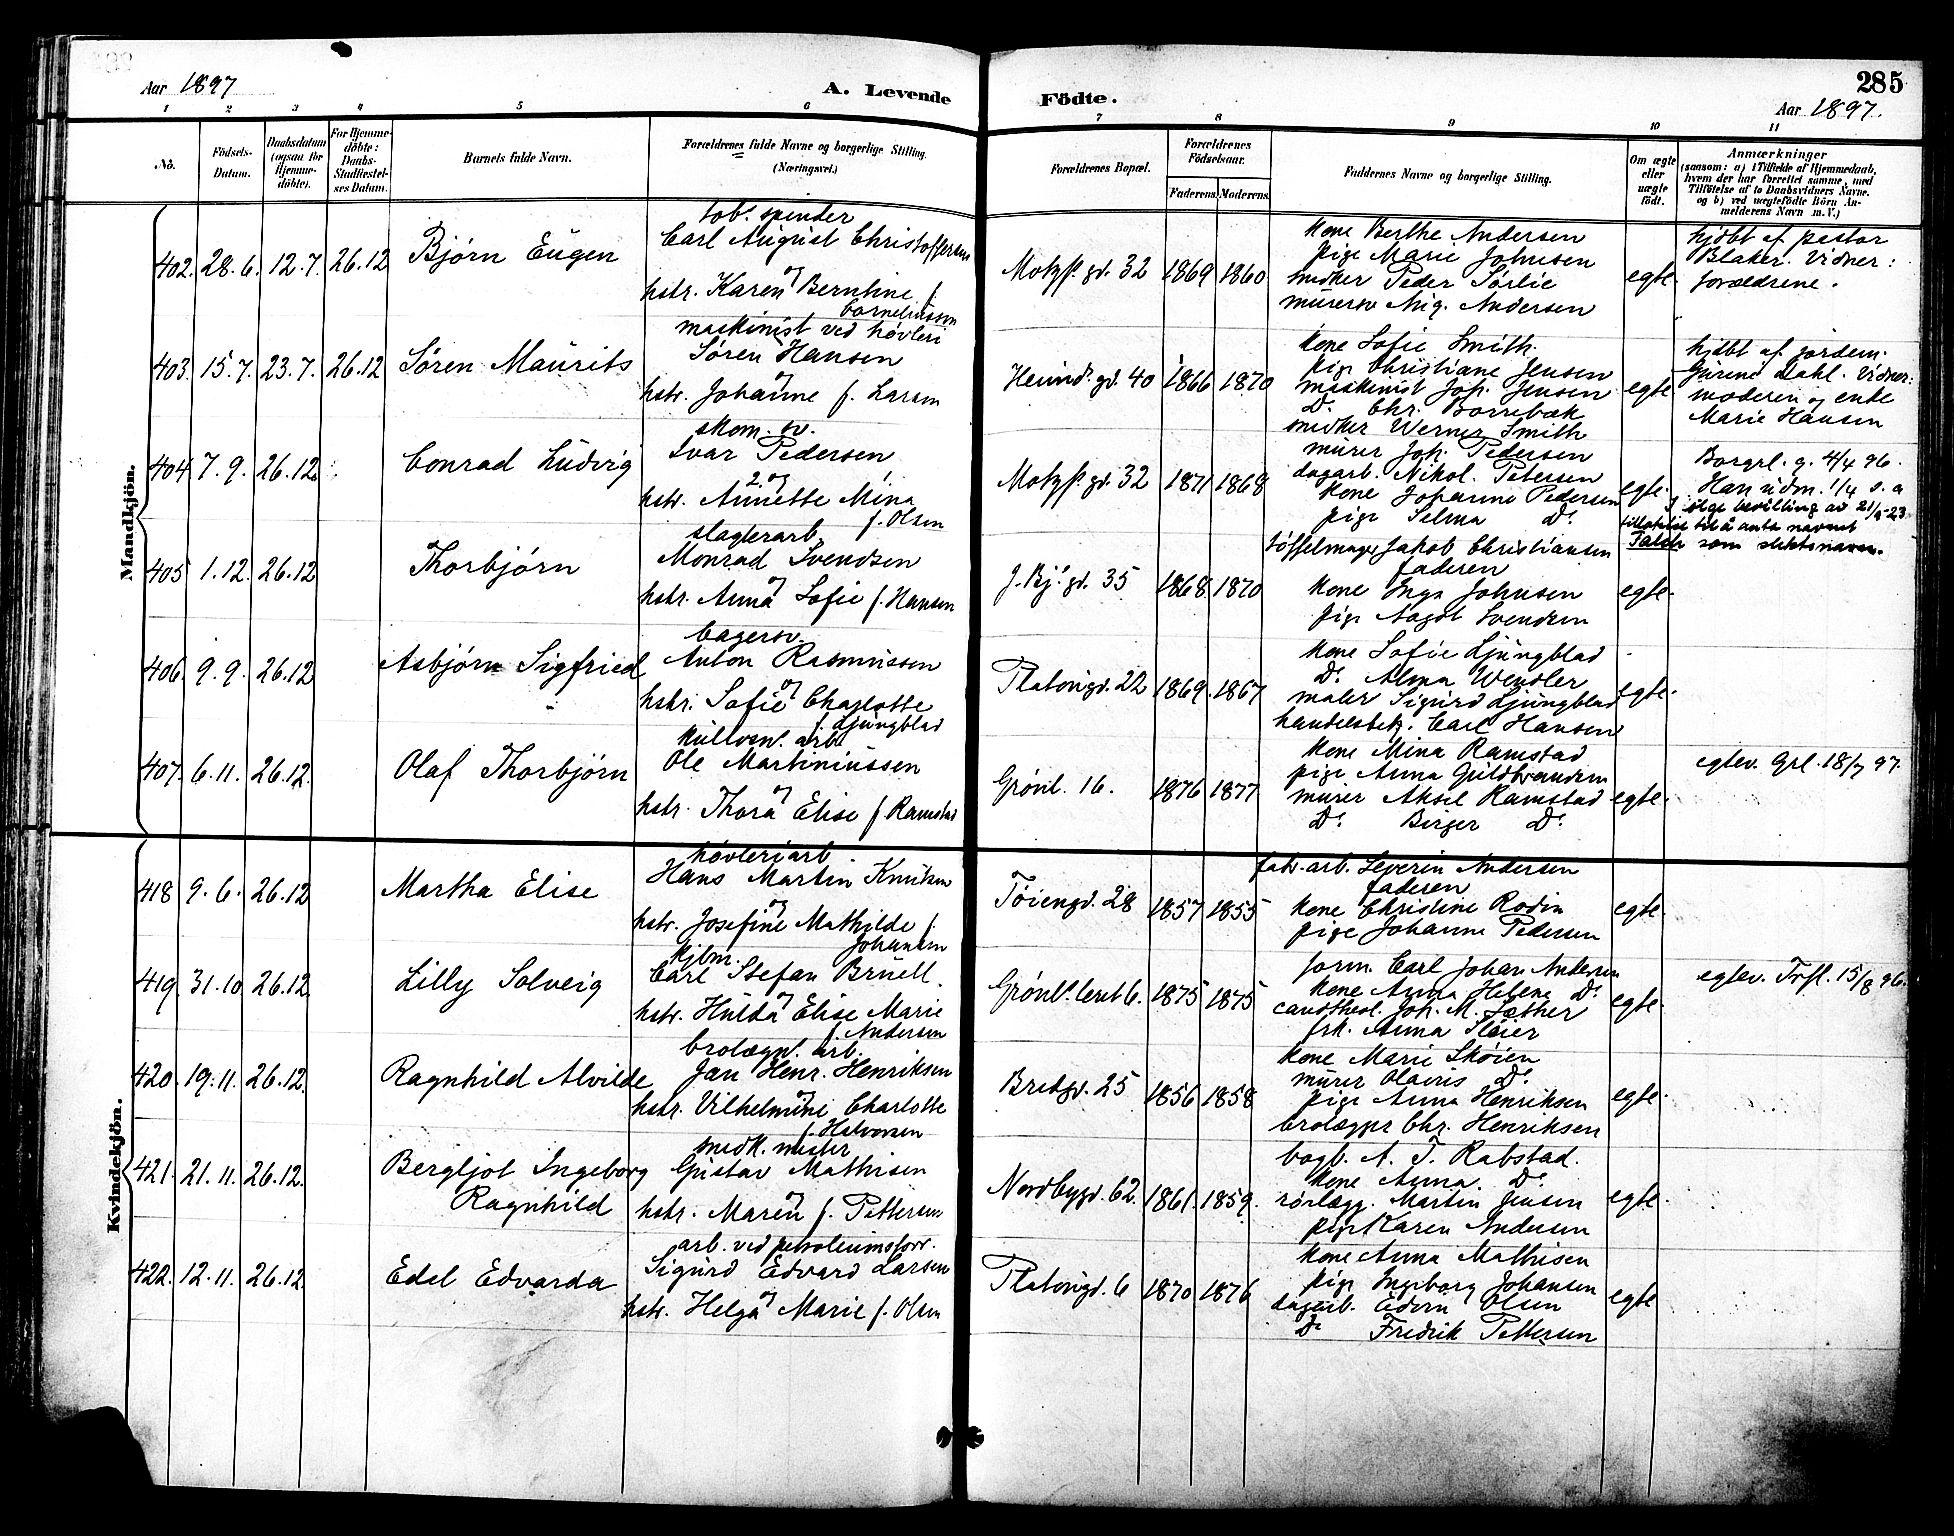 285
Aar 1897
A. Levende
Födte.
Aar 1897.
1 2 3 4 5 6 7 8 9 10 11
No.
Födsels-
Datum.
Daabsdatum
(ogsaa for
Hjemme-
döbte).
For Hjemme-
döbte:
Daabs-
Stadfæstel-
ses Datum.
Barnets fulde Navn.
Forældrenes fulde Navne og borgerlige Stilling.
(Næringsvei.)
Forældrenes Bopæl.
Forældrenes
Födselsaar.
Faderens. Moderens.
Faddernes Navne og borgerlige Stilling.
Om ægte
eller
uægte
födt.
Anmærkninger
(saasom: a) i Tilfælde af Hjemmedaab,
hvem der har forrettet samme, med
Tilföielse af to Daabsvidners Navne.
og b) ved uægtefödte Börn An-
melderens Navn m. V.)
Mandkjön.
402. 28.6. 12.7. 26.12
Bjørn Eugen
tob. spinder
Carl August Christoffersen
og
hstr. Karen Berntine f.
Cornelinssen
Motzf. gd. 32 1869 1860
kone Berthe Andersen
pige Marie Johnsen
snedker Peder Sørlie
murersv Aug. Andersen
egte.
hjdbt af pastor
Blaker. Vidner:
forældrene.
403. 15.7. 23.7. 26.12
Søren Maurits
maskinist ved høvleri
Søren Hansen
og
hstr. Johanne f. Larsen
Heimd. gd. 40 1866 1870
kone Sofie Smith.
pige Christiane Jensen
maskinist Joh. Jensen
Do. Chr. Borrebæk
snedker Werner Smith
egte
hjdbt af jordem.
Gurine Dahl. Vidner:
moderen og enke
Marie Hansen
404 7.9. 26.12.
Conrad Ludvig
skom. sv.
Ivar Pedersen
2 og
hstr. Annette Mina
f. Olsen
Motzf. gd. 32 1871 1868
murer Joh. Pedersen
dagarb. Nikol. Petersen
kone Johanne Pedersen
pige Selma Do.
egte.
Borgrl. g. 4/4 96.
Han udm. 1/4 s. a
Ifølge bevilling av 21/8-23
tillatelse til å anta navnet
som slektsnavn.
405 1.12. 26.12
Thorbjørn
slagterarb.
Monrad Svendsen
og
hstr. Anna Sofie f. Hansen
J. Bj. gd. 35 1868 1870
tøffelmager Jakob Christiansen
faderen
kone Inga Johnsen
pige Aagot Svendsen
egte.
406. 9.9. 26.12
Asbjørn Sigfried
bagersv.
Anton Rasmussen
og
hstr. Sofie Charlotte
f. Ljungblad
Platougd. 22 1869 1867
kone Sofie Ljungblad
Do. Alma Wensler
maler Sigurd Ljungblad
handelsbetj. Carl Hansen
egte.
407. 6.11. 26.12.
Olaf Thorbjørn
arb.
Ole Martiniussen
og
hstr. Thora Elise f. Ramstad
Grønl. 16. 1876 1877
kone Mina Ramstad
pige Anna Guldbrandsen
murer Aksel Ramstad
Do. Birger Do.
egte.
egtev. Grl. 18/7 97.
Kvindekjön.
418 9.6. 26.12
Martha Elise
høvleriarb.
Hans Martin Knutsen
og
hstr. Josefine Mathilde f.
Johansen
Tøiengd. 28 1857 1855
fabr. arb. Severin Andersen
faderen
kone Christine Rodin
pige Johanne Pedersen
egte.
419 31.10 26.12.
Lilly Solveig
kjbm.
Carl Stefan Bruell.
og
hstr. Hulda Elise Marie
f. Andersen
Grønl. leret 6. 1875 1875
form. Carl Johan Andersen
kone Anna Helene Do.
cand theol. Joh. M. Sæther
frk. Anna Sleier
egte.
egtev. Trfl. 15/8 96.
420 19.11. 26.12.
Ragnhild Alvilde
brolægn. arb.
Jan Henr. Henriksen
og
hstr. Vilhelmine Charlotte
f. Halvorsen
Bredgd. 25 1856 1858
kone Marie Skøien
murer Olavis Do.
pige Anna Henriksen
brolægger Chr. Henriksen
egte.
421. 21.11. 26.12.
Bergljot Ingeborg
Ragnhild
snedk. mester
Gustav Mathisen
og
hstr. Maren f. Pettersen
Nordbygd. 62. 1861. 1859.
bogb. A. T. Rabstad.
kone Anna. Do.
rørlægg. Martin Jensen
pige Karen Andersen
egte.
422. 12.11. 26.12.
Edel Edvarda
arb. ved petroleumsforr.
Sigurd Edvard Larsen
og
hstr. Helga Marie f. Olsen
Platougd. 6 1870 1876
kone Anna Mathisen
pige Ingeborg Johansen
dagarb. Edvin Olsen
Do. Fredrik Pettersen
egte